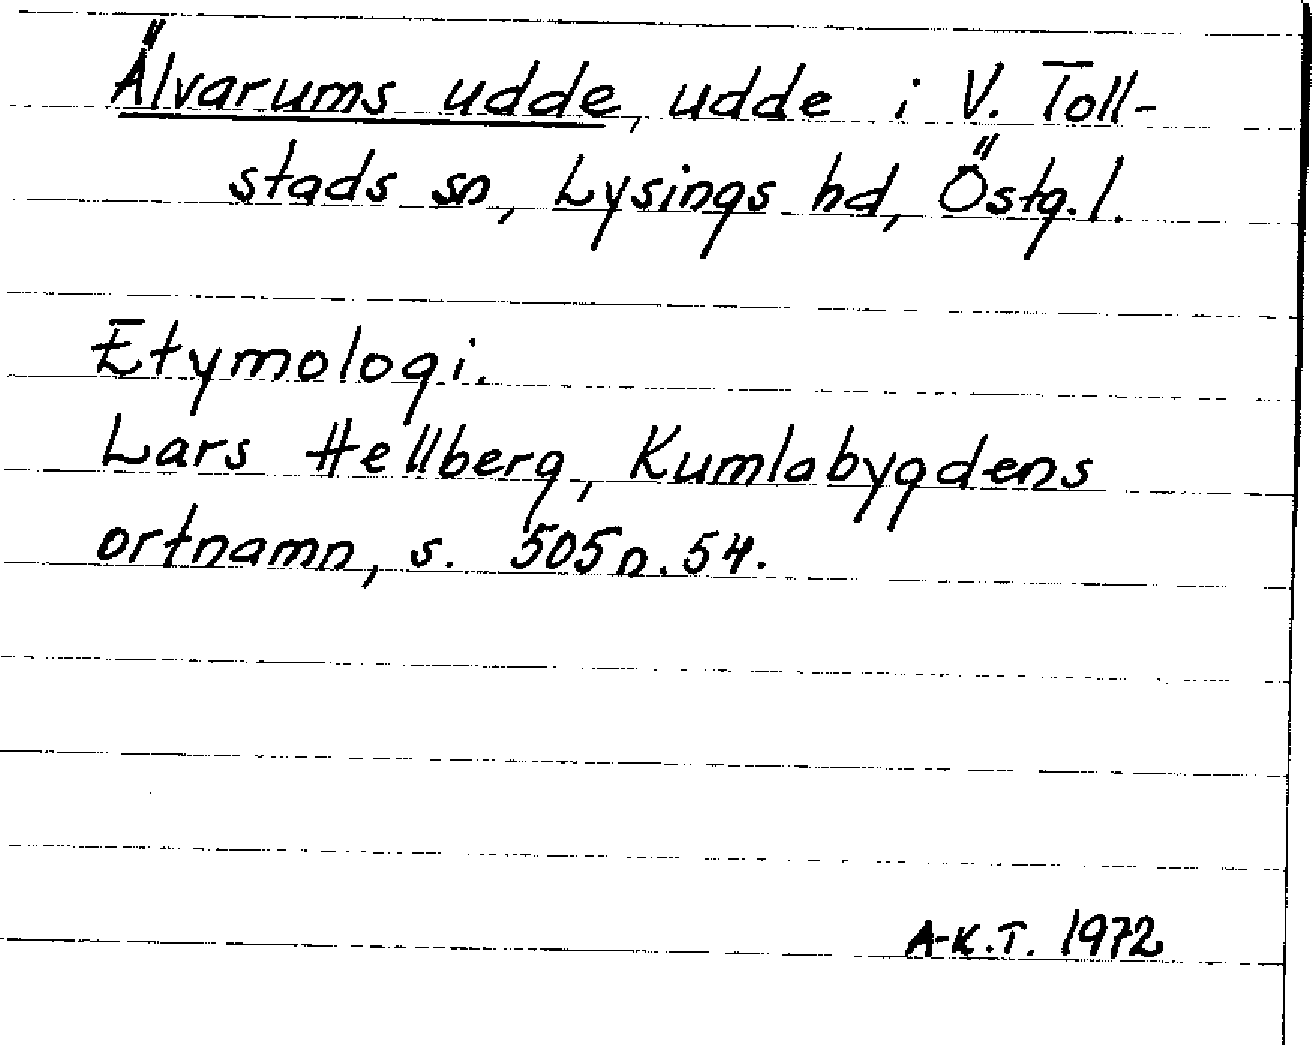 Älvarums udde, udde i V. Toll-
stads sn, Lysings hd, Östg.l.
Etymologi.
Lars Hellberg, Kumlabygdens
ortnamn, s. 505 n. 54.
A-K.T. 1972